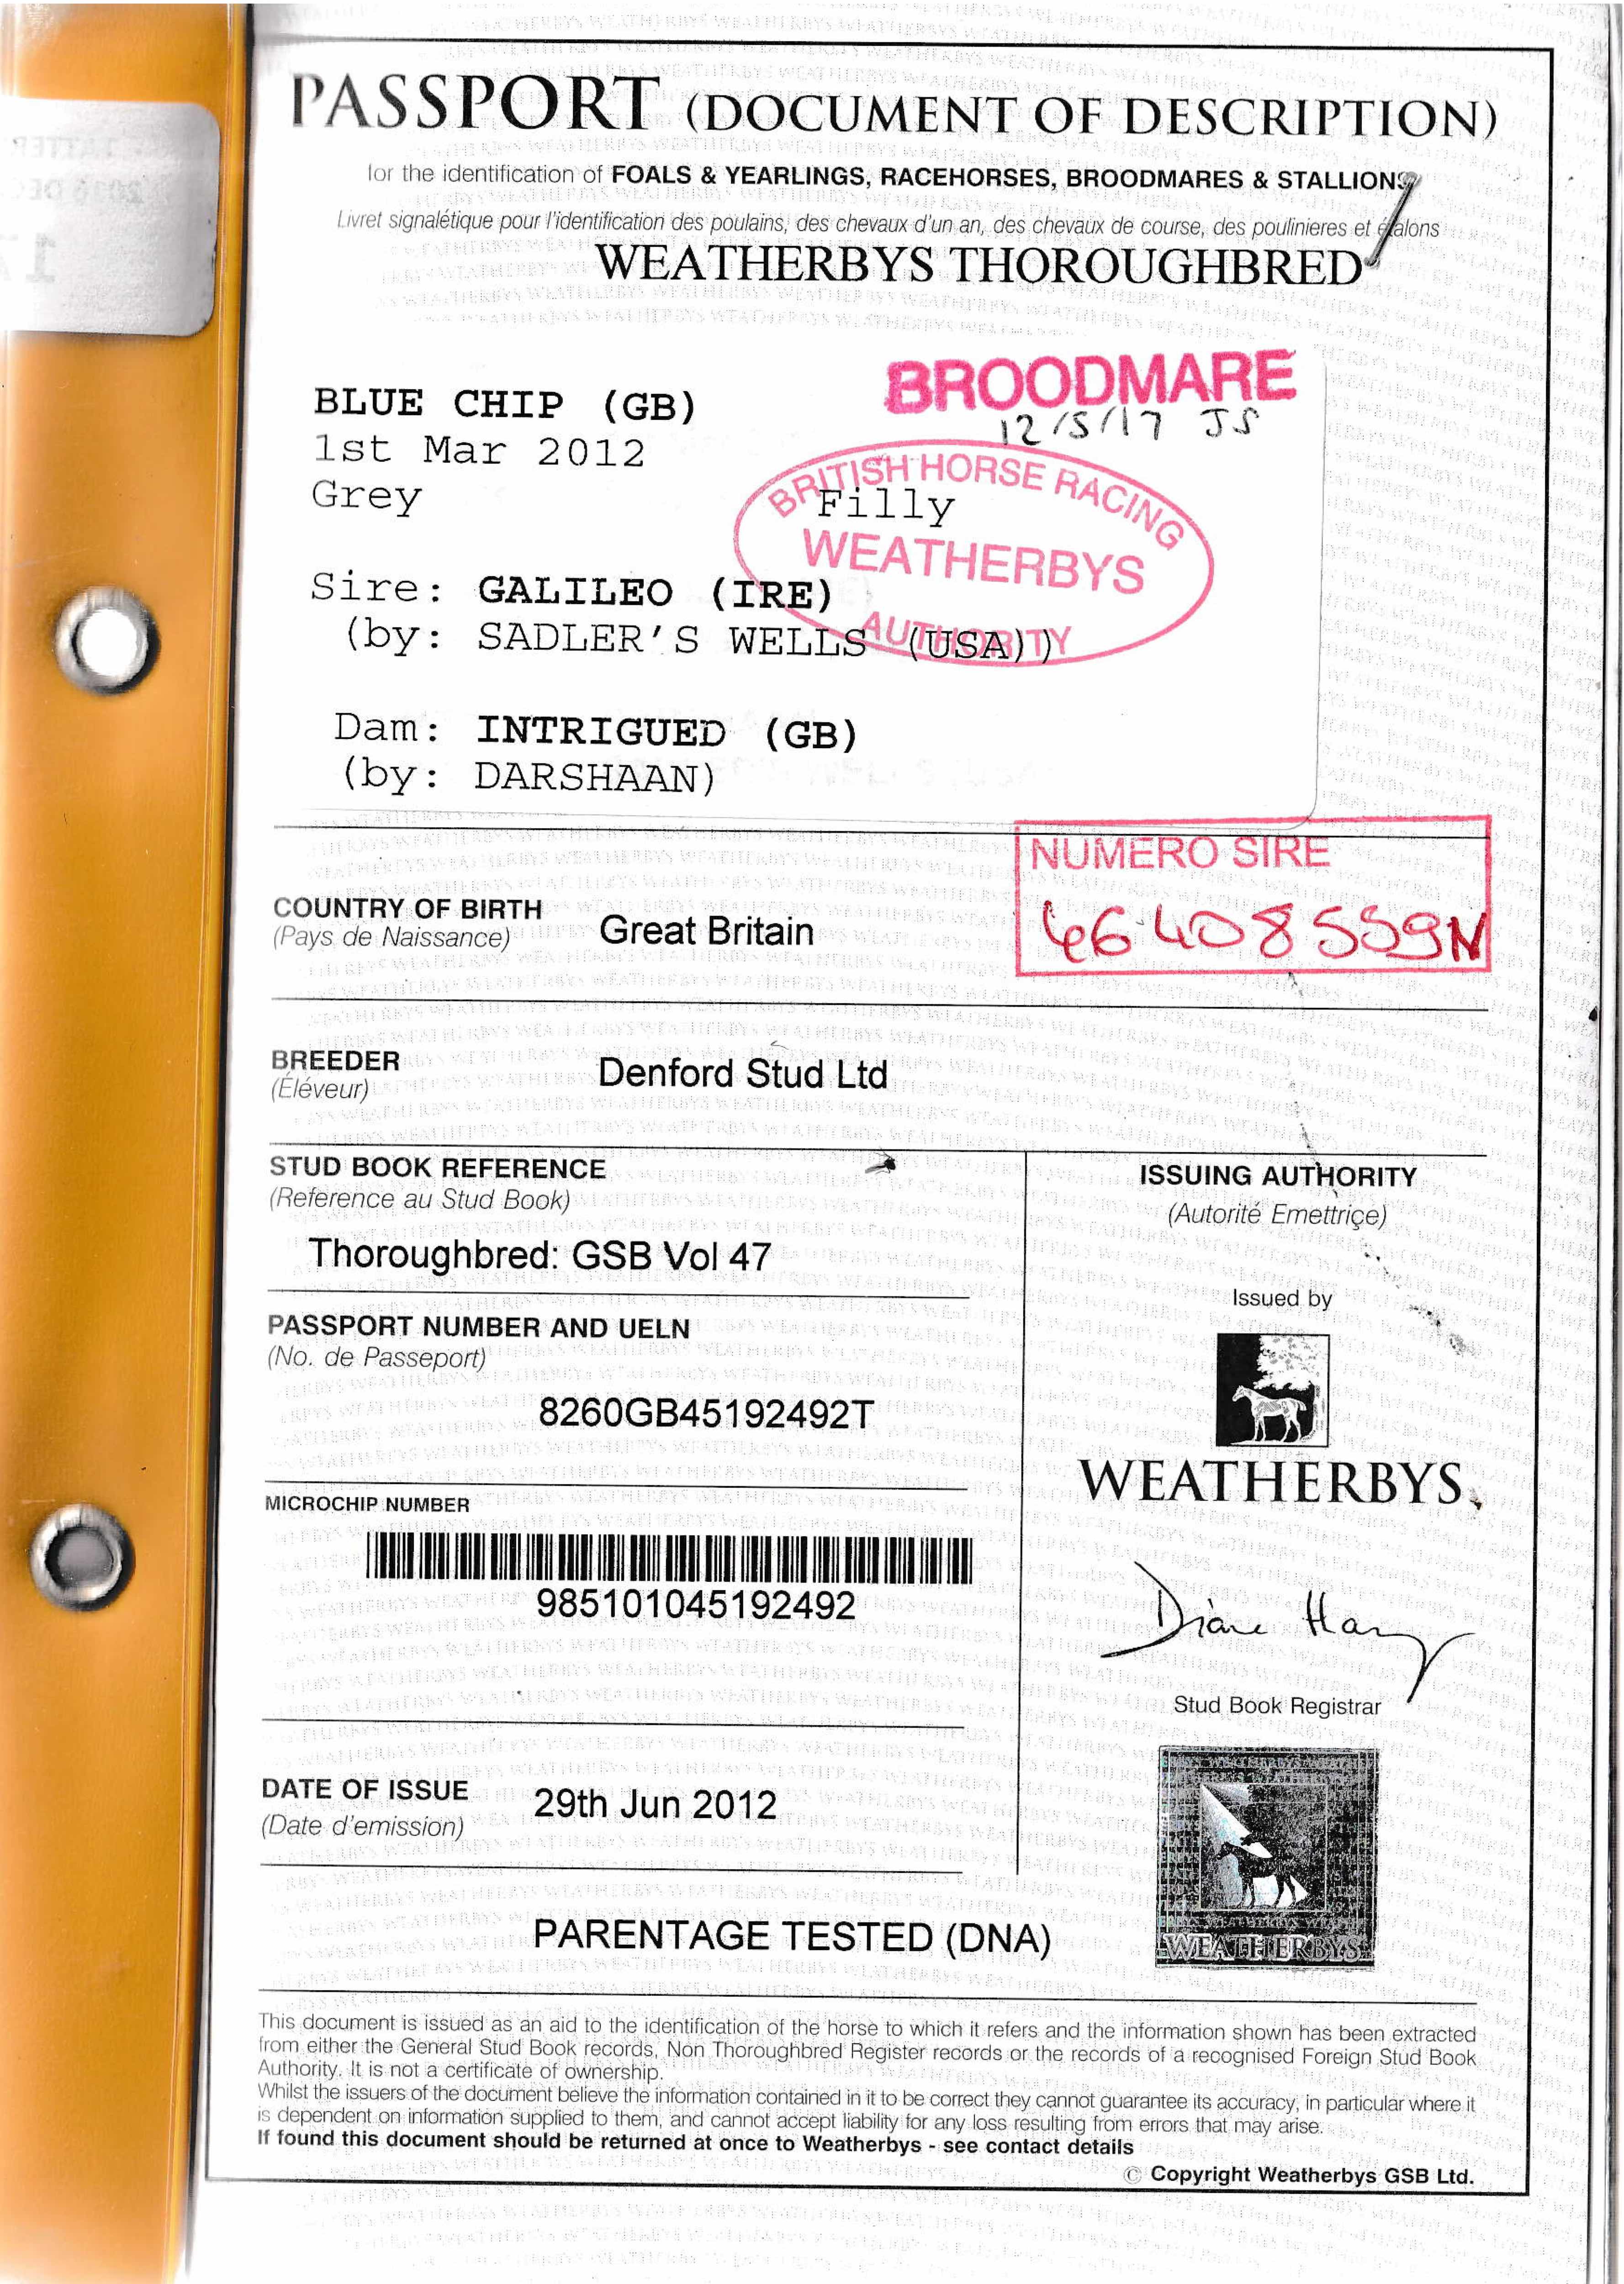 PASSPORT (DOCUMENT OF DESCRIPTION)
for the identification of FOALS & YEARLINGS, RACEHORSES, BROODMARES & STALLIONS
Livret signalétique pour l'identification des poulains, des chevaux d'un an, des chevaux de course, des poulinieres et étalons
WEATHERBYS THOROUGHBRED
BROODMARE
12/5/17 JS
BLUE CHIP (GB)
1st Mar 2012
Grey
Filly
BRITISH HORSE RACING
WEATHERBYS
AUTHORITY
Sire: GALILEO (IRE)
(by: SADLER'S WELLS (USA))
Dam: INTRIGUED (GB)
(by: DARSHAAN)
NUMERO SIRE
46408559N
COUNTRY OF BIRTH
(Pays de Naissance)
Great Britain
BREEDER
(Éléveur)
Denford Stud Ltd
STUD BOOK REFERENCE
(Reference au Stud Book)
Thoroughbred: GSB Vol 47
PASSPORT NUMBER AND UELN
(No. de Passeport)
8260GB45192492T
MICROCHIP NUMBER
985101045192492
DATE OF ISSUE
(Date d'emission)
29th Jun 2012
ISSUING AUTHORITY
(Autorité Emettriçe)
Issued by
WEATHERBYS
Stud Book Registrar
WEATHERBYS
PARENTAGE TESTED (DNA)
This document is issued as an aid to the identification of the horse to which it refers and the information shown has been extracted
from either the General Stud Book records, Non Thoroughbred Register records or the records of a recognised Foreign Stud Book
Authority. It is not a certificate of ownership.
Whilst the issuers of the document believe the information contained in it to be correct they cannot guarantee its accuracy, in particular where it
is dependent on information supplied to them, and cannot accept liability for any loss resulting from errors that may arise.
If found this document should be returned at once to Weatherbys - see contact details
© Copyright Weatherbys GSB Ltd.